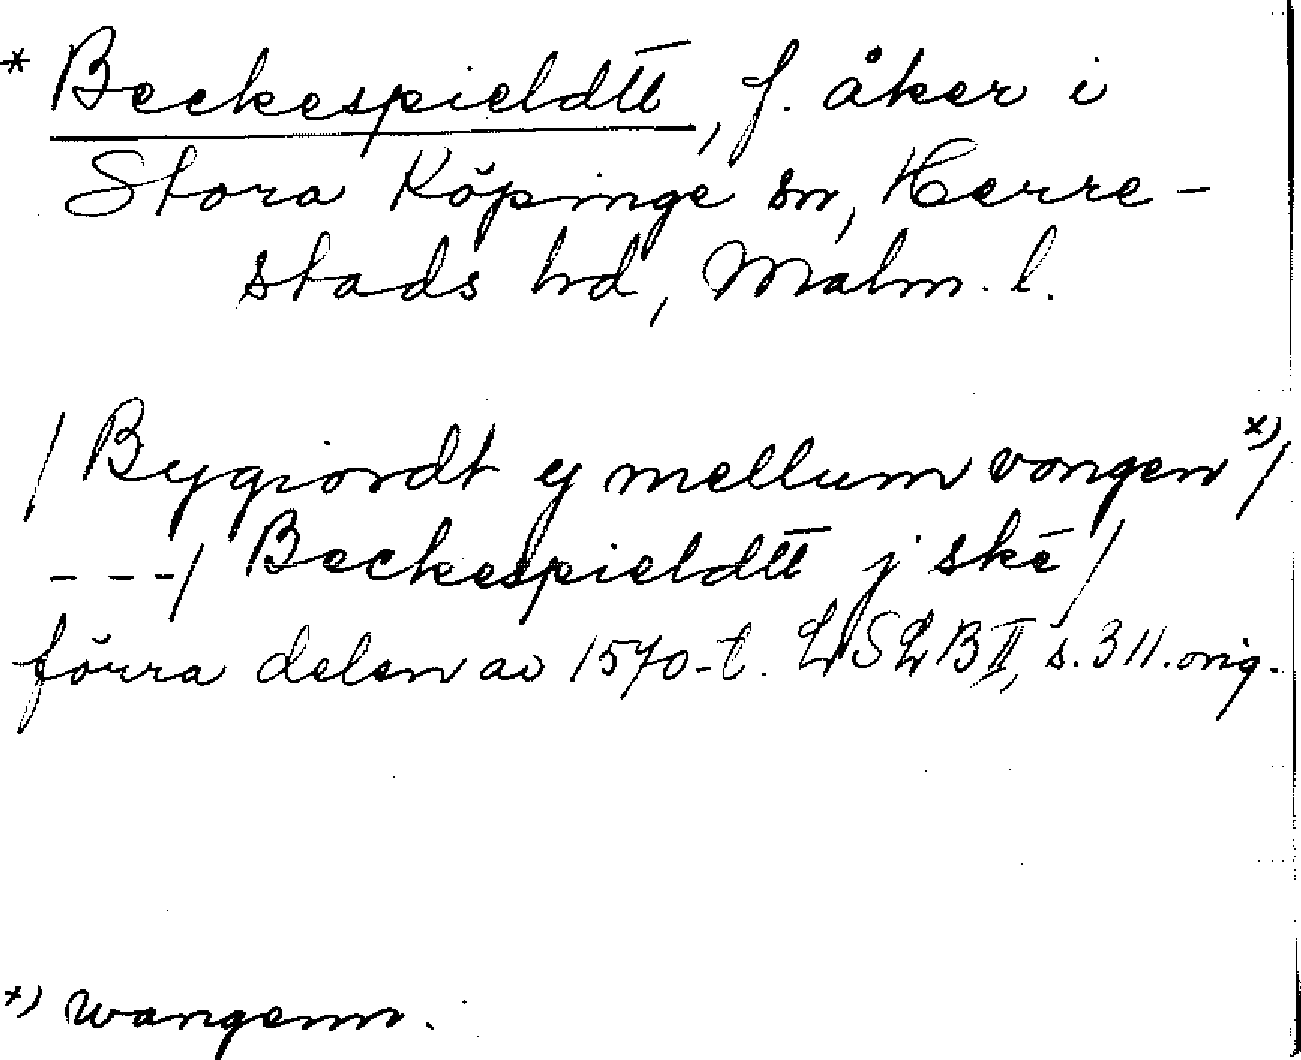 * Beckespieldt̄t, f. åker i
Stora Köpinge sn, Herre-
stads hd, Malm. l.
/ Bygiordt ej mellum vongen x)/
---/ Beckespieldt̄t j skē /
förra delen av 1570-t. LSLB II, s. 311. orig.
x) wangenn.